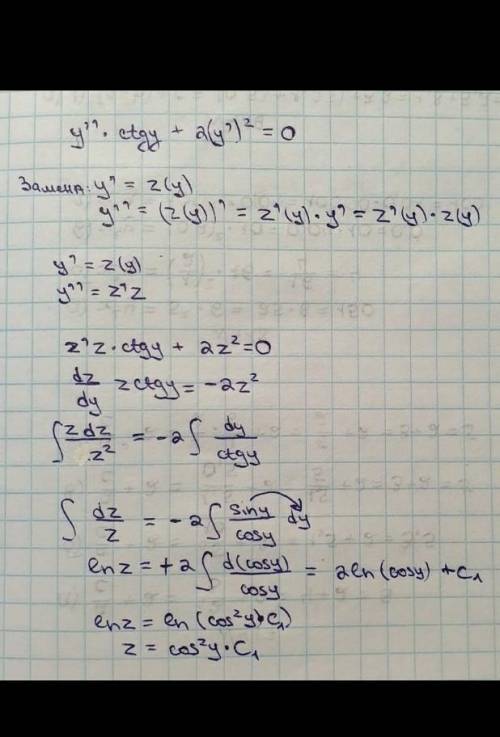 y''· ctgy + 2(y')² = 0
Замена: y' = z(y)
y'' = (z(y))' = z'(y)·y' = z'(y)·z(y)
y' = z(y)
y'' = z'z
z'z·ctgy + 2z² = 0
dz/dy zctgy = -2z²
∫ zdz/z² = -2∫ dy/ctgy
∫ dz/z = -2∫ siny/cosy dy
lnz = +2∫ d(cosy)/cosy = 2ln(cosy) + C₁
lnz = ln(cos²y·C₁)
z = cos²y·C₁